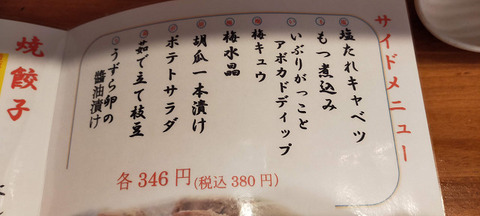 サイドメニュー
塩たれキャベツ
もつ煮込み
いぶりがっこと
アボカドディップ
梅キュウ
梅水晶
胡瓜一本漬け
ポテトサラダ
茹で立て枝豆
うずら卵の
醬油漬け
各346円(税込380円)
焼餃子